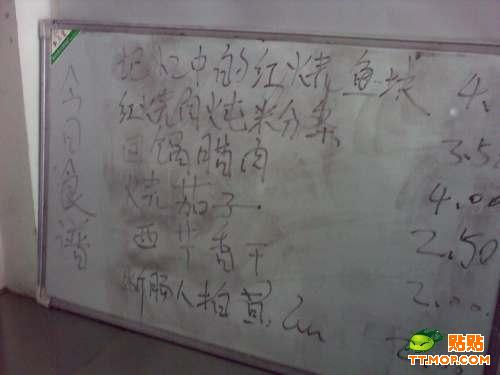 今日食谱
记忆中的红烧鱼块 4.
红烧肉炖米分条
回锅腊肉 3.5
烧茄子 4.00
西芹香干 2.50
断肠人拍黄瓜 2.00
贴贴
TT.MOP.COM